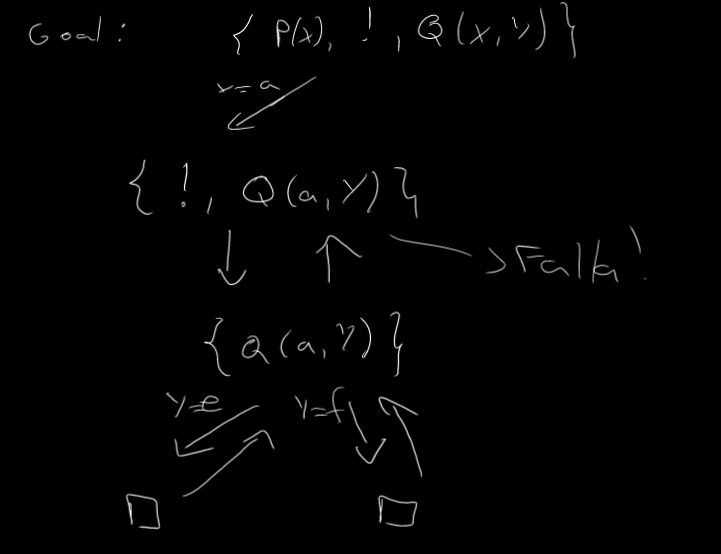 Goal: { P(x), !, Q(x,y)}
x=a
{ !, Q(a,y)}
Falla!
{Q(a,y)}
y=e y=f